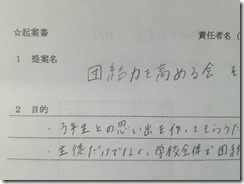 ☆起案書
責任者名（
1 提案名
団結力を高める会 そ
2 目的
・3年生との思い出を作ってもらうた
・生徒だけでなく、学校全体で団結